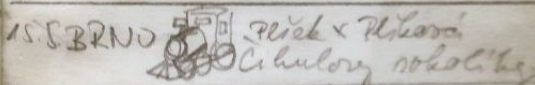 15.5. BRNO Plšek × Plšková
Cihulovy sokolíky